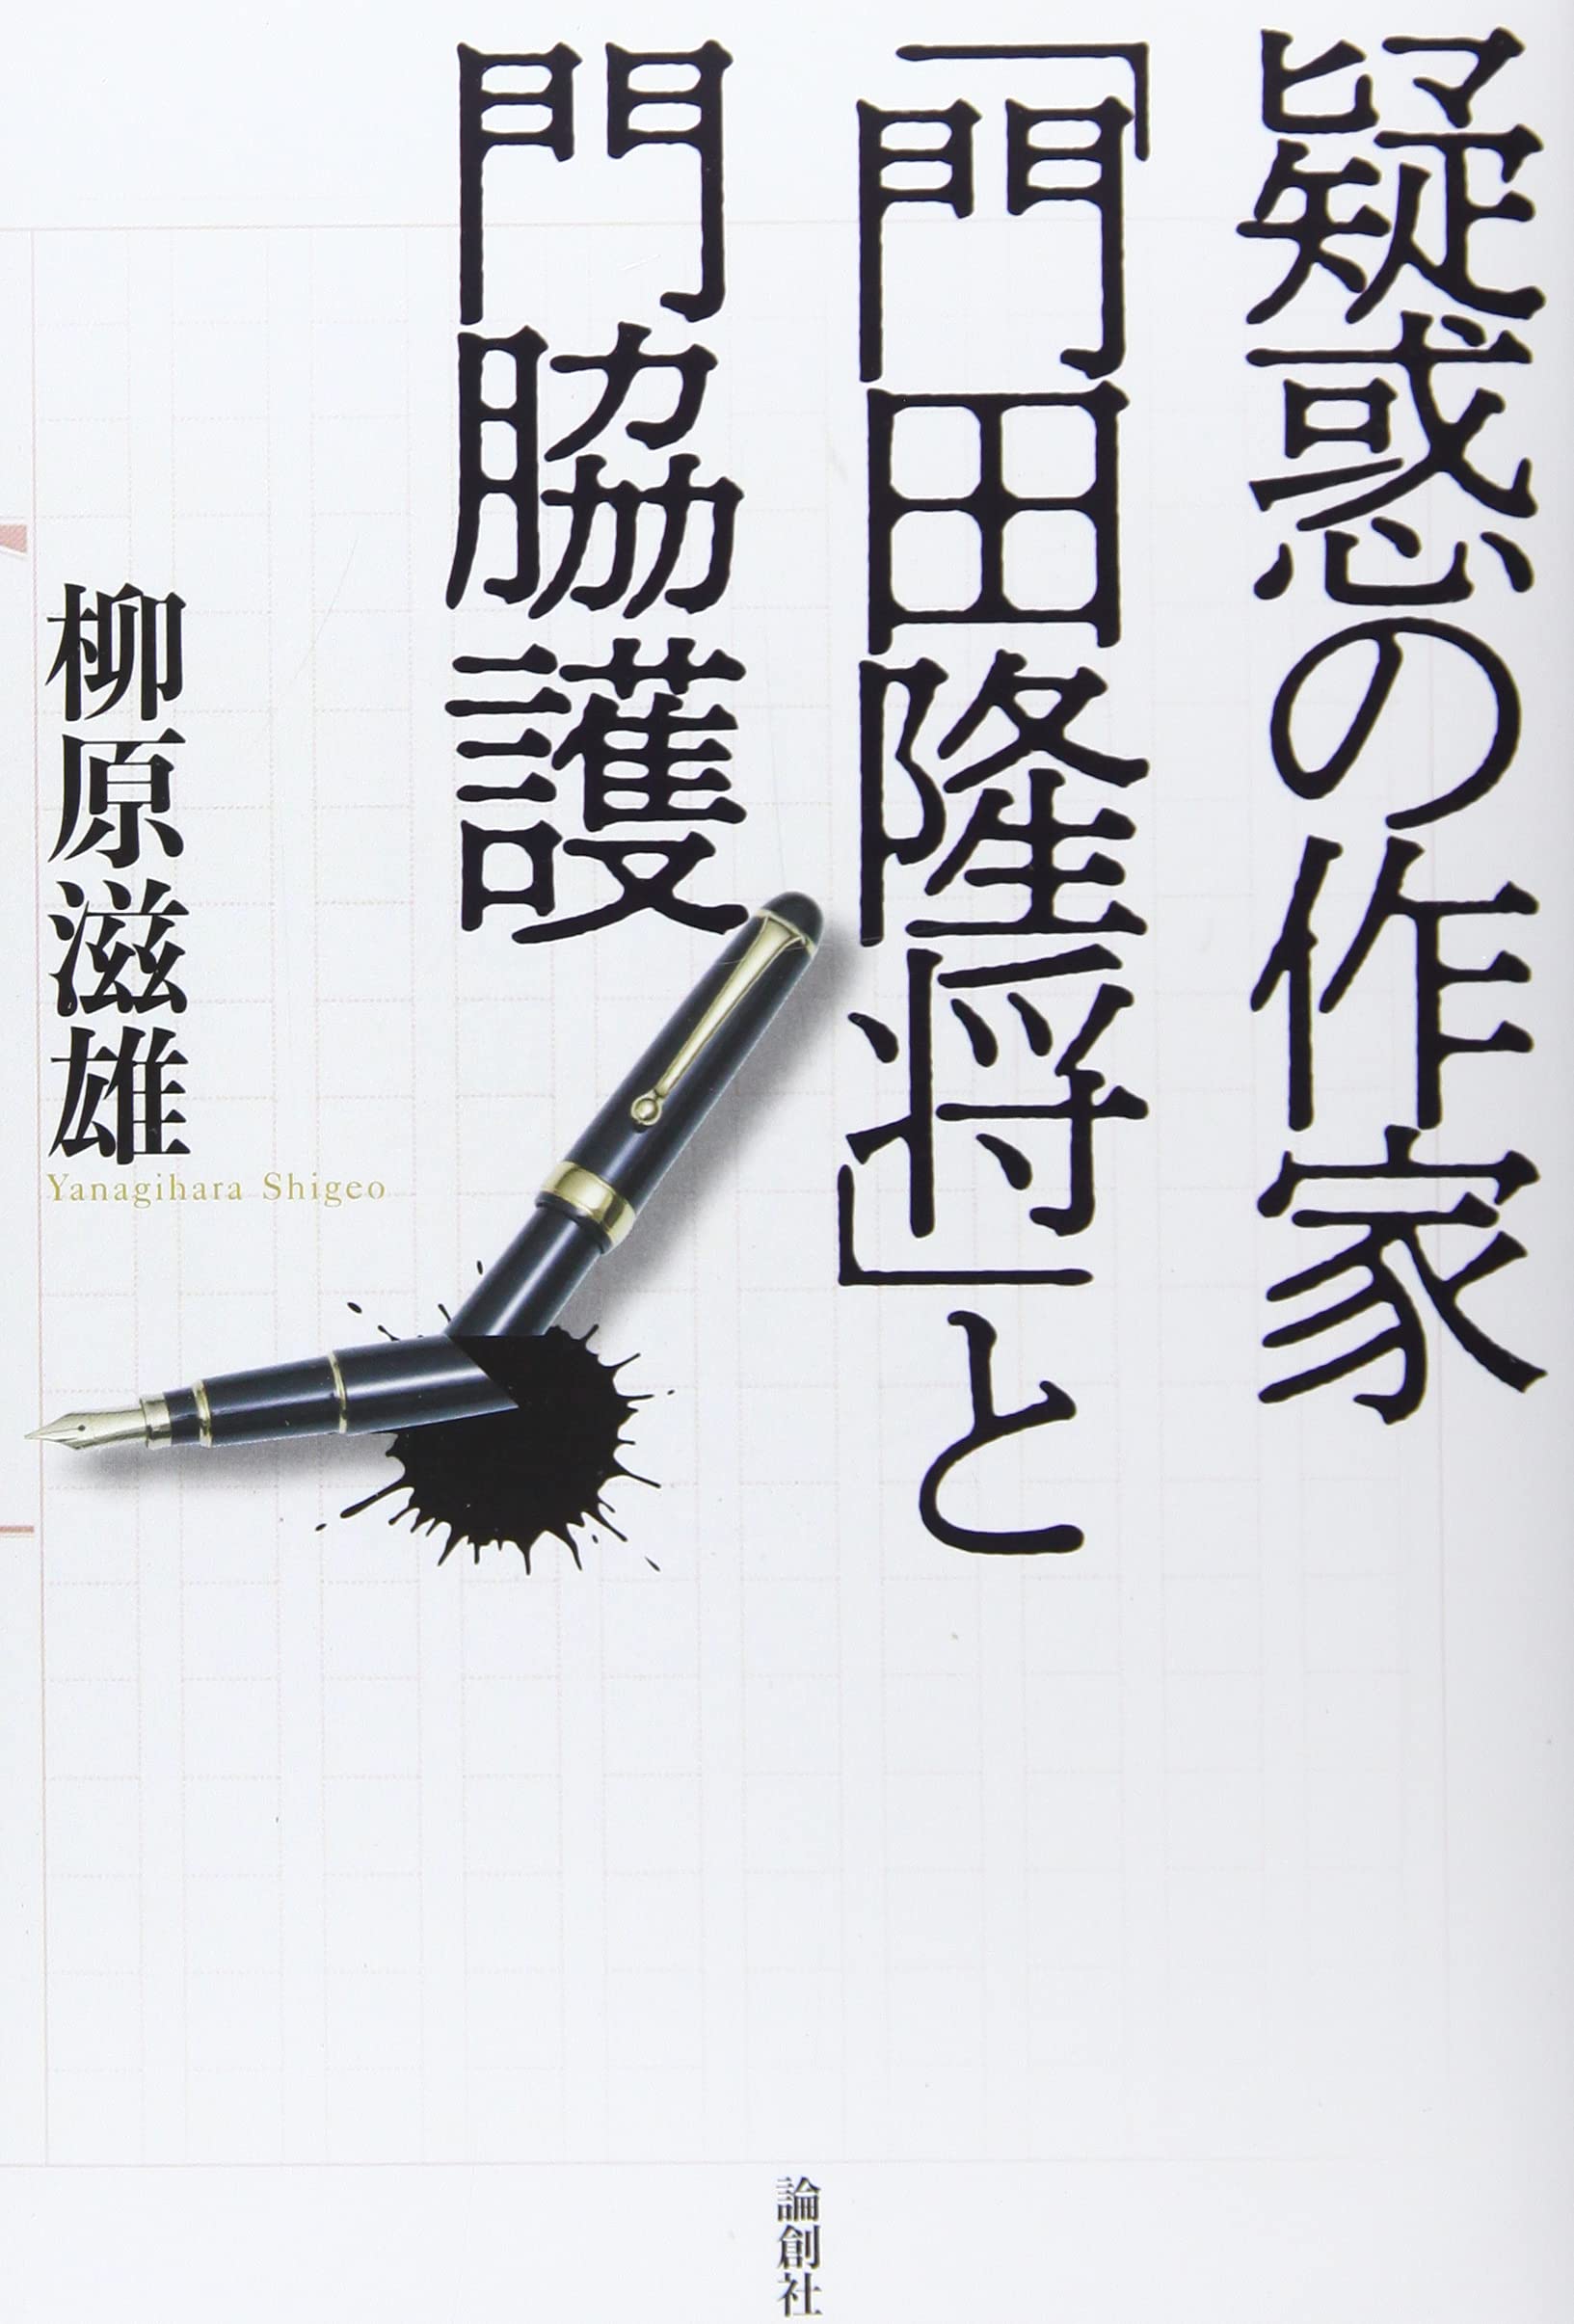 疑惑の作家
「門田隆将」と
門脇護
柳原滋雄
Yanagihara Shigeo
論創社